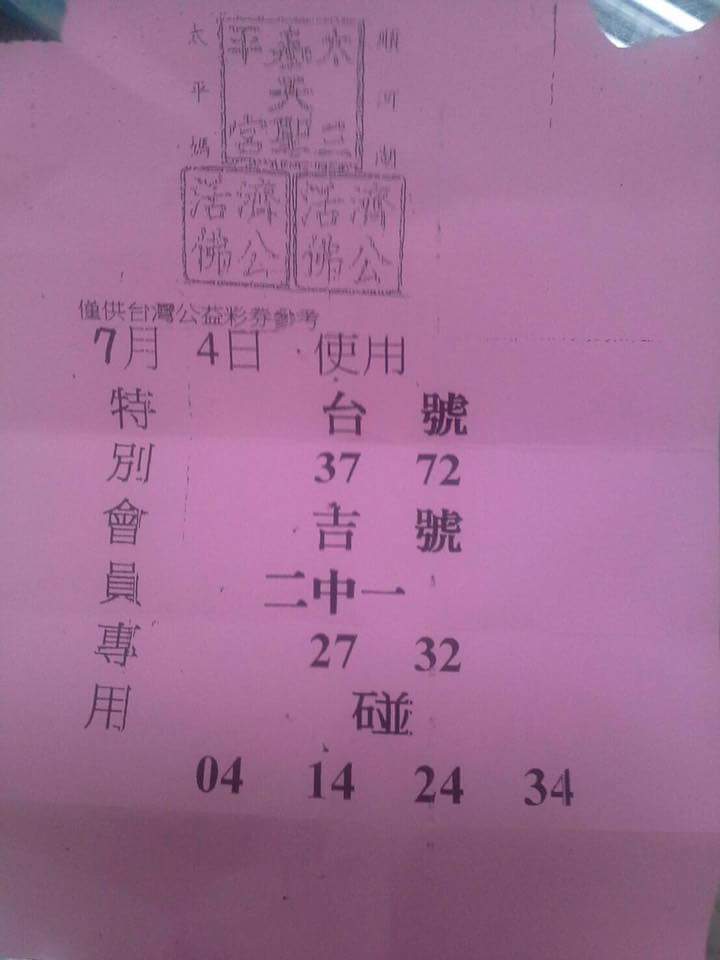 順河湖
太平媽
濟公活佛
濟公活佛
僅供台灣公益彩券參考
7月 4日 使用
特別會員專用
台 號
37 72
吉 號
二中一
27 32
碰
04 14 24 34